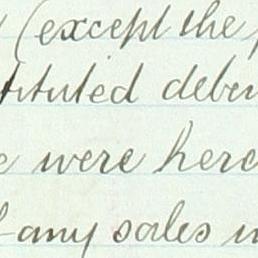 (except the
tituted deben
were here
any sales